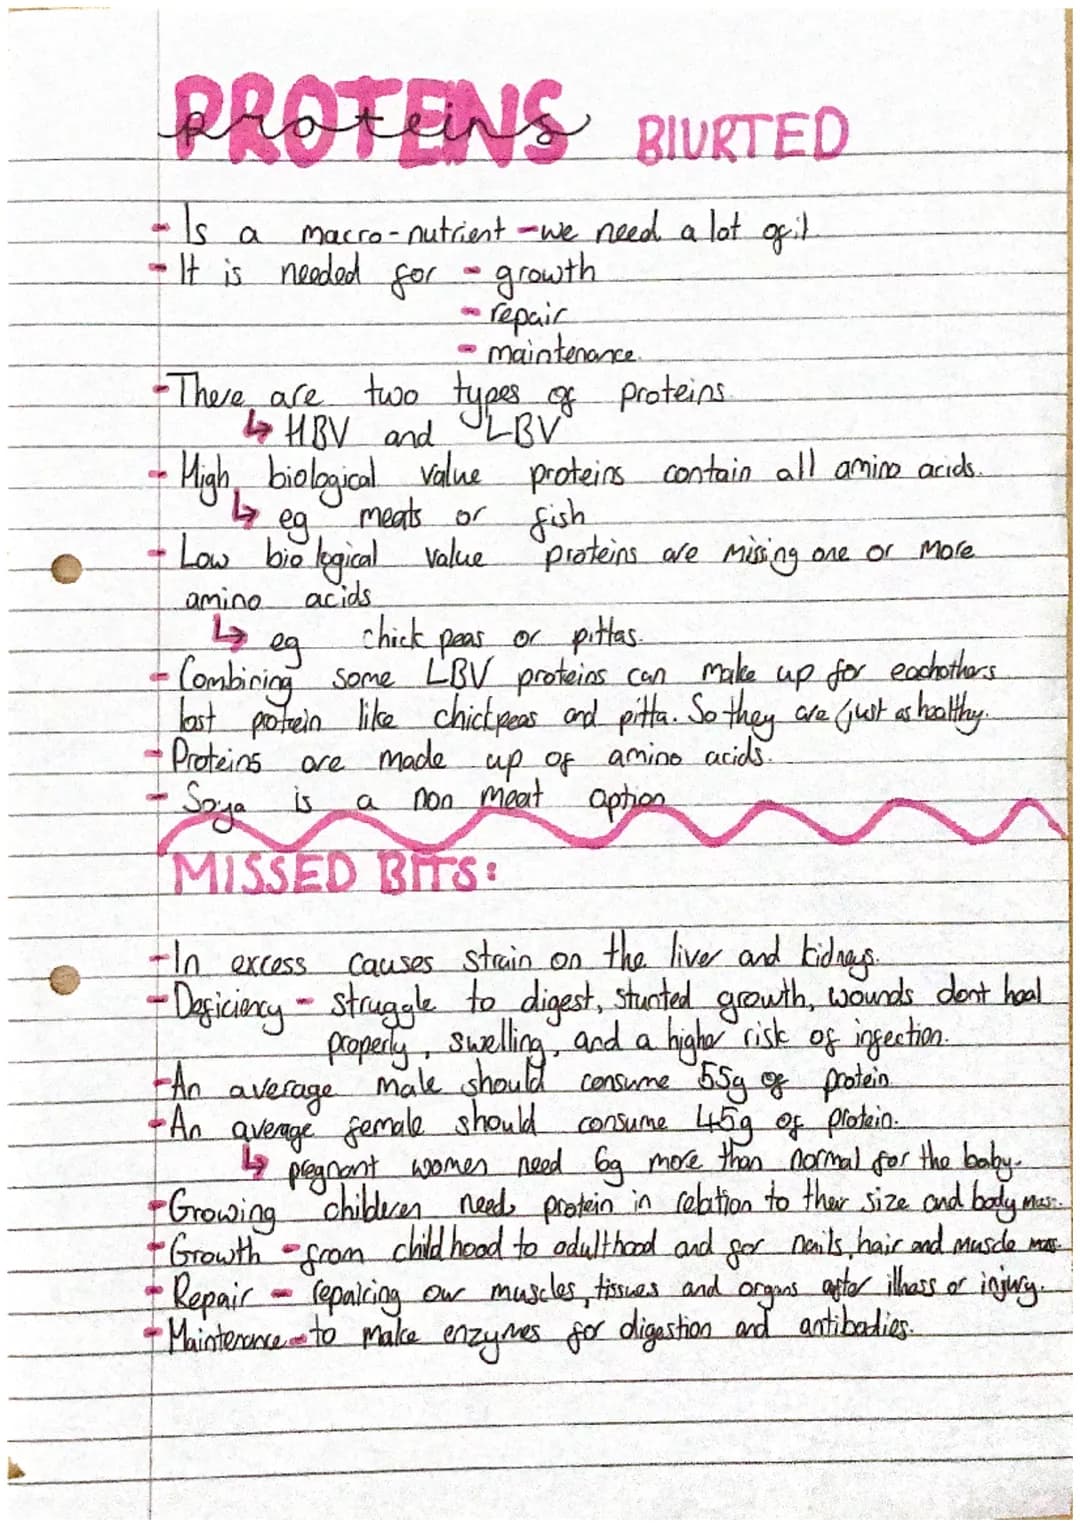 PROTENS proteins BlURTED
- Is a macro-nutrient - we need a lot of it
- It is needed for - growth
- repair
- maintenance.
- There are two types of proteins.
↳ HBV and LBV
- High biological value proteins contain all amino acids.
↳ eg meats or fish
- Low biological value proteins are missing one or more
amino acids
↳ eg chick peas or pittas.
- Combining some LBV proteins can make up for eachothers
lost protein like chickpeas and pitta. So they are just as healthy.
- Proteins are made up of amino acids.
- Soya is a non meat option
MISSED BITS:
- In excess causes strain on the liver and kidneys.
- Deficiency - struggle to digest, stunted growth, wounds dont heal
properly, swelling, and a higher risk of infection.
- An average male should consume 55g of protein.
- An average female should consume 45g of protein.
↳ pregnant women need 6g more than normal for the baby.
- Growing childeren need protein in relation to their size and body mass.
- Growth - from childhood to adulthood and for nails, hair and muscle mass.
- Repair - repairing our muscles, tissues and organs after illness or injury.
- Maintenance - to make enzymes for digestion and antibodies.